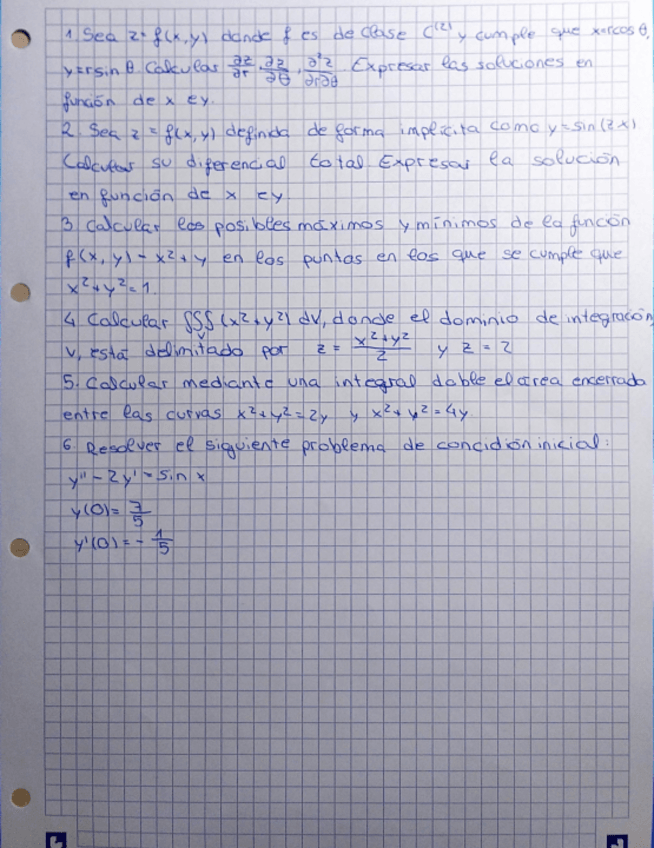 1. Sea z = f(x,y) donde f es de clase C⁽²⁾ y cumple que x=rcos θ,
y=rsin θ. Calcular ∂z/∂r, ∂z/∂θ, ∂²z/∂r∂θ. Expresar las soluciones en
función de x e y.
2. Sea z = f(x,y) definida de forma implícita como y = sin(zx)
Calcular su diferencial total. Expresar la solución
en función de x e y
3. Calcular los posibles máximos y mínimos de la función
f(x,y) = x²+y en los puntos en los que se cumple que
x²+y²=1.
4. Calcular ∭_V (x²+y²) dV, donde el dominio de integración,
V, está delimitado por z = (x²+y²)/2 y z = 2
5. Calcular mediante una integral doble el área encerrada
entre las curvas x²+y²=2y y x²+y²=4y.
6. Resolver el siguiente problema de concidión inicial:
y''-2y'=sin x
y(0)=7/5
y'(0)=-1/5